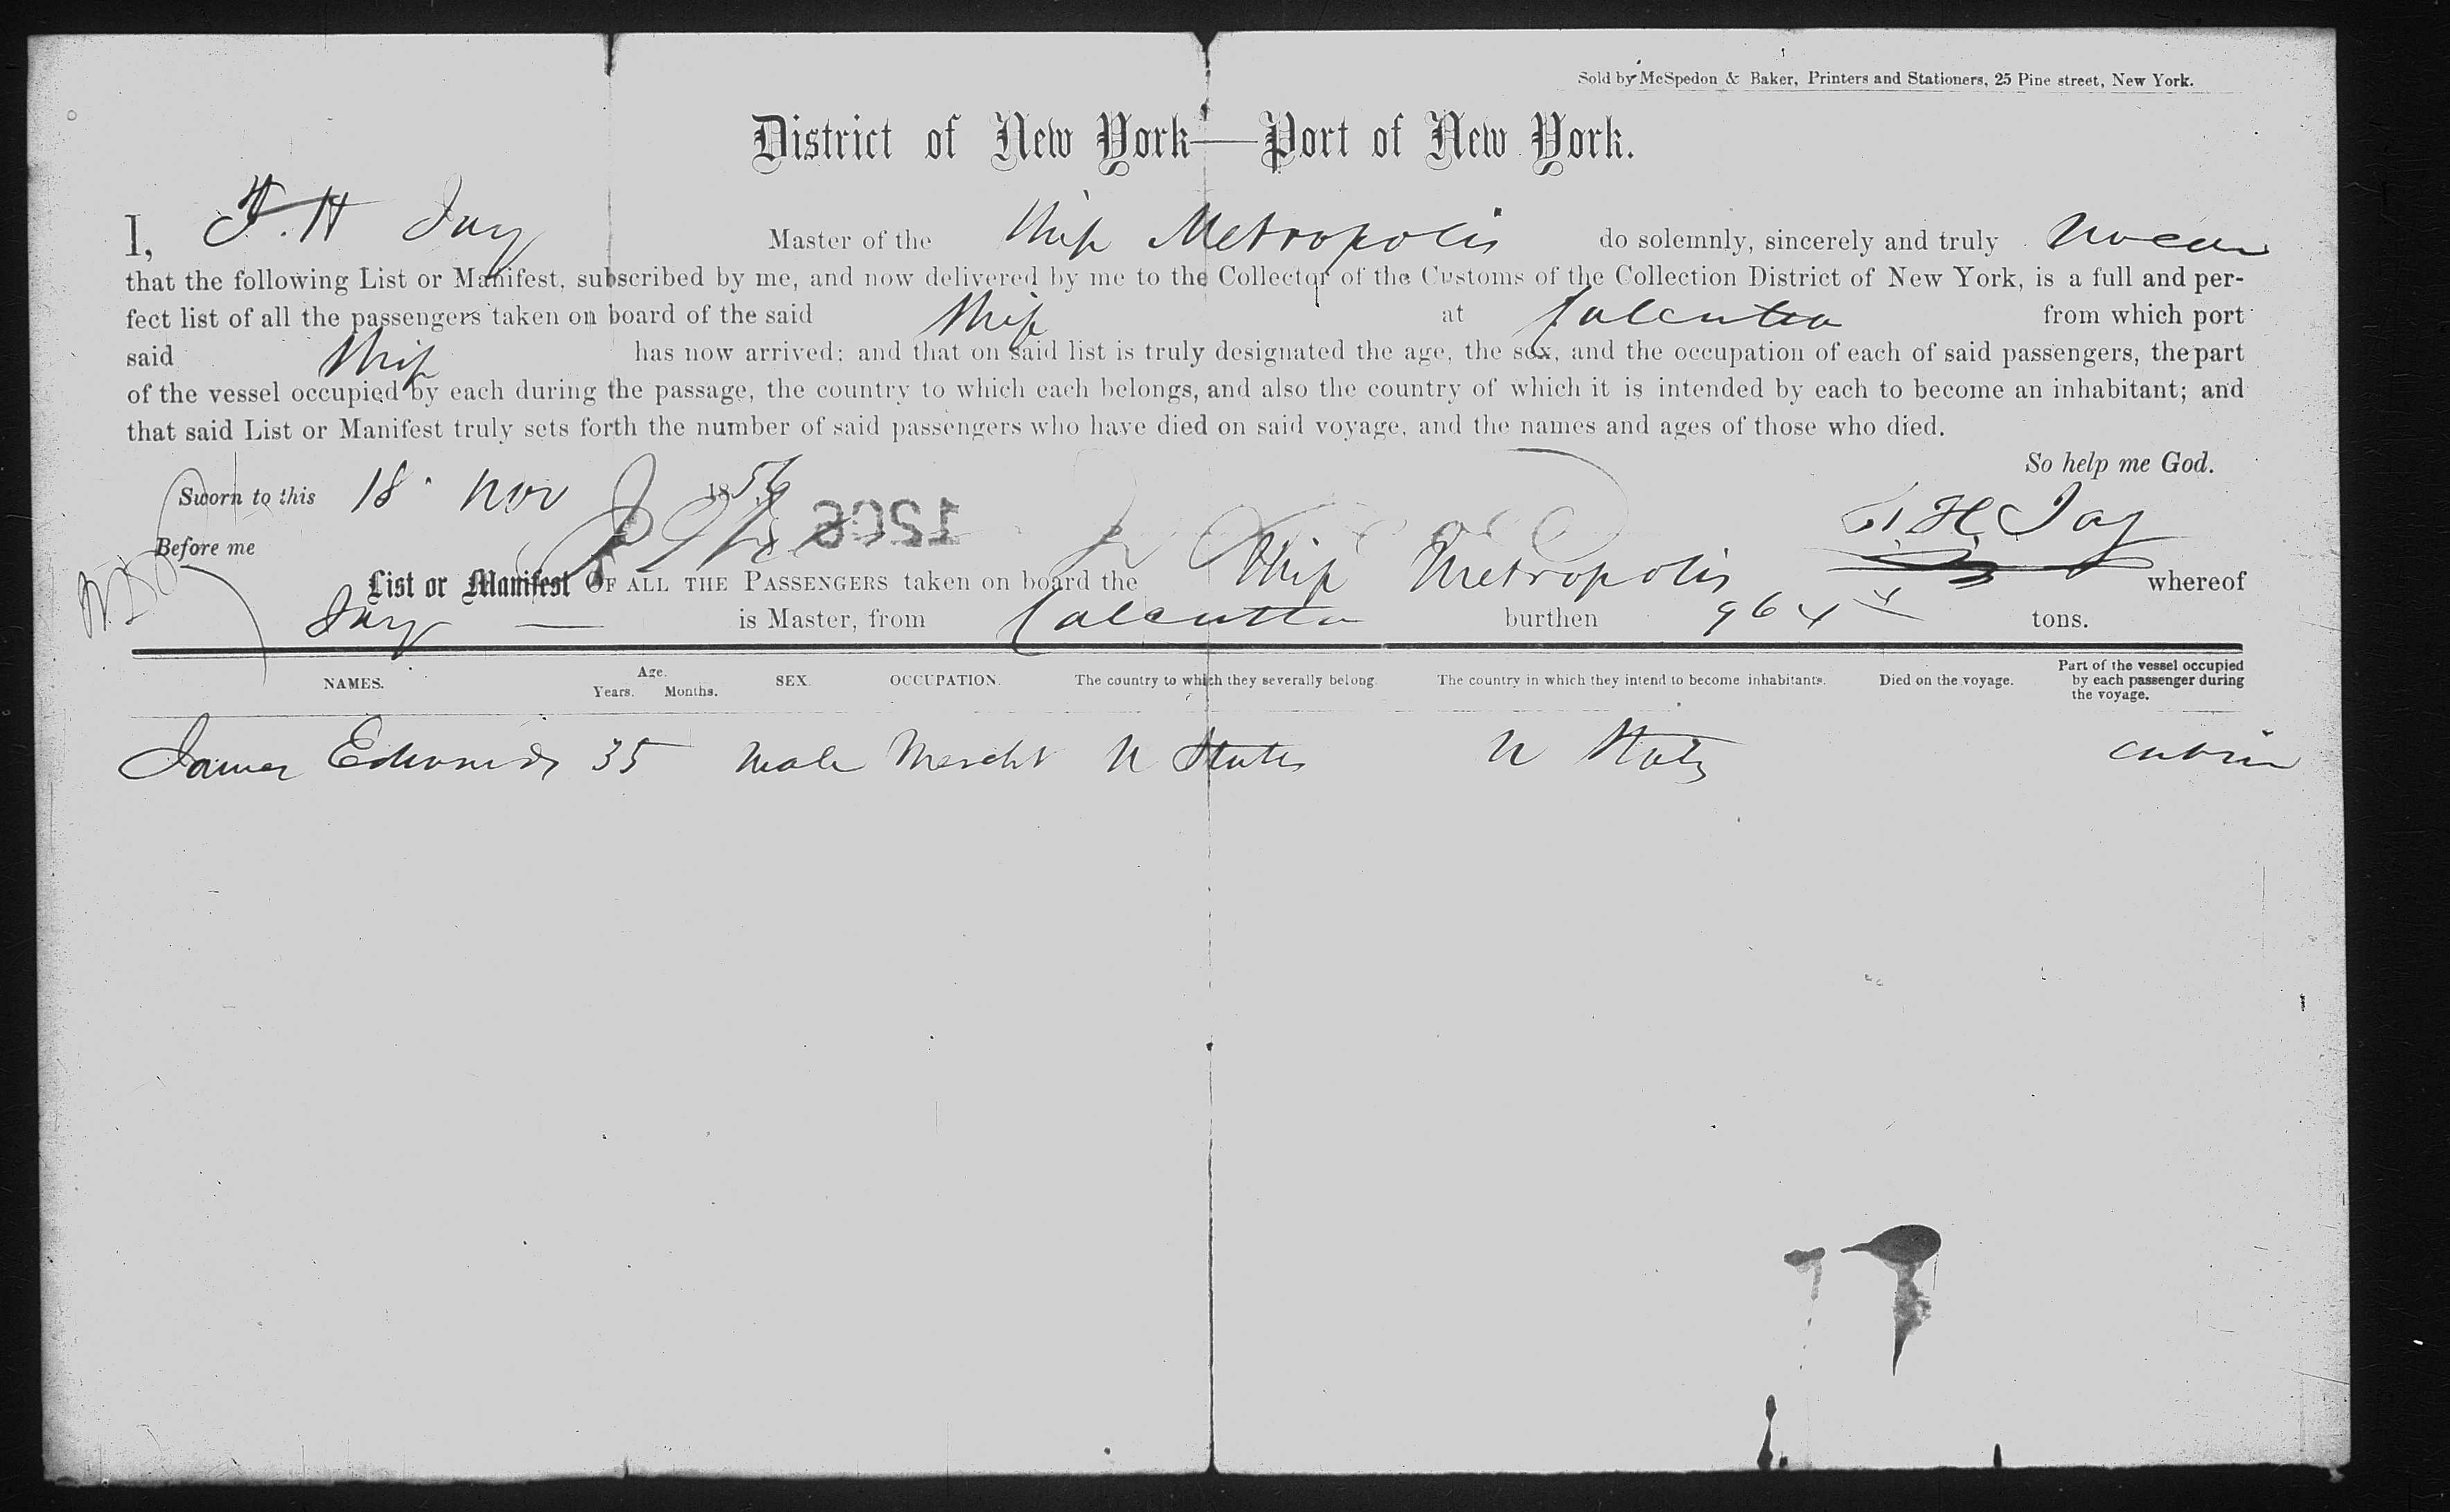 Sold by McSpedon & Baker, Printers and Stationers, 25 Pine street, New York.
District of New York—Port of New York.
I, H Jay Master of the Ship Metropolis do solemnly, sincerely and truly swear
that the following List or Manifest, subscribed by me, and now delivered by me to the Collector of the Customs of the Collection District of New York, is a full and per-
fect list of all the passengers taken on board of the said Ship at Calcutta from which port
said Ship has now arrived; and that on said list is truly designated the age, the sex, and the occupation of each of said passengers, the part
of the vessel occupied by each during the passage, the country to which each belongs, and also the country of which it is intended by each to become an inhabitant; and
that said List or Manifest truly sets forth the number of said passengers who have died on said voyage, and the names and ages of those who died.
So help me God.
Sworn to this 18 Nov 1856
1206
H Jay
Before me
List or Manifest OF ALL THE PASSENGERS taken on board the Ship Metropolis whereof
Jay is Master, from Calcutta burthen 964 tons.
NAMES. Age. Years. Months. SEX. OCCUPATION. The country to which they severally belong. The country in which they intend to become inhabitants. Died on the voyage. Part of the vessel occupied by each passenger during the voyage.
James Edwards 35 Male Mercht U States U States cabin